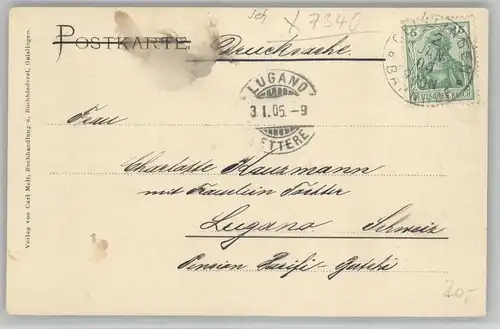 Sch
X 7340
POSTKARTE.
Drucksache.
5 5
DEUTSCHES REICH
LUGANO
3.I.05.-9
LETTERE
Frau
Charlotte Hausmann
mit Fräulein Tochter
Lugano Schweiz
Pension Pacifi-Gutschi
20,-
Verlag von Carl Maier, Buchhandlung u. Buchbinderei, Geislingen.